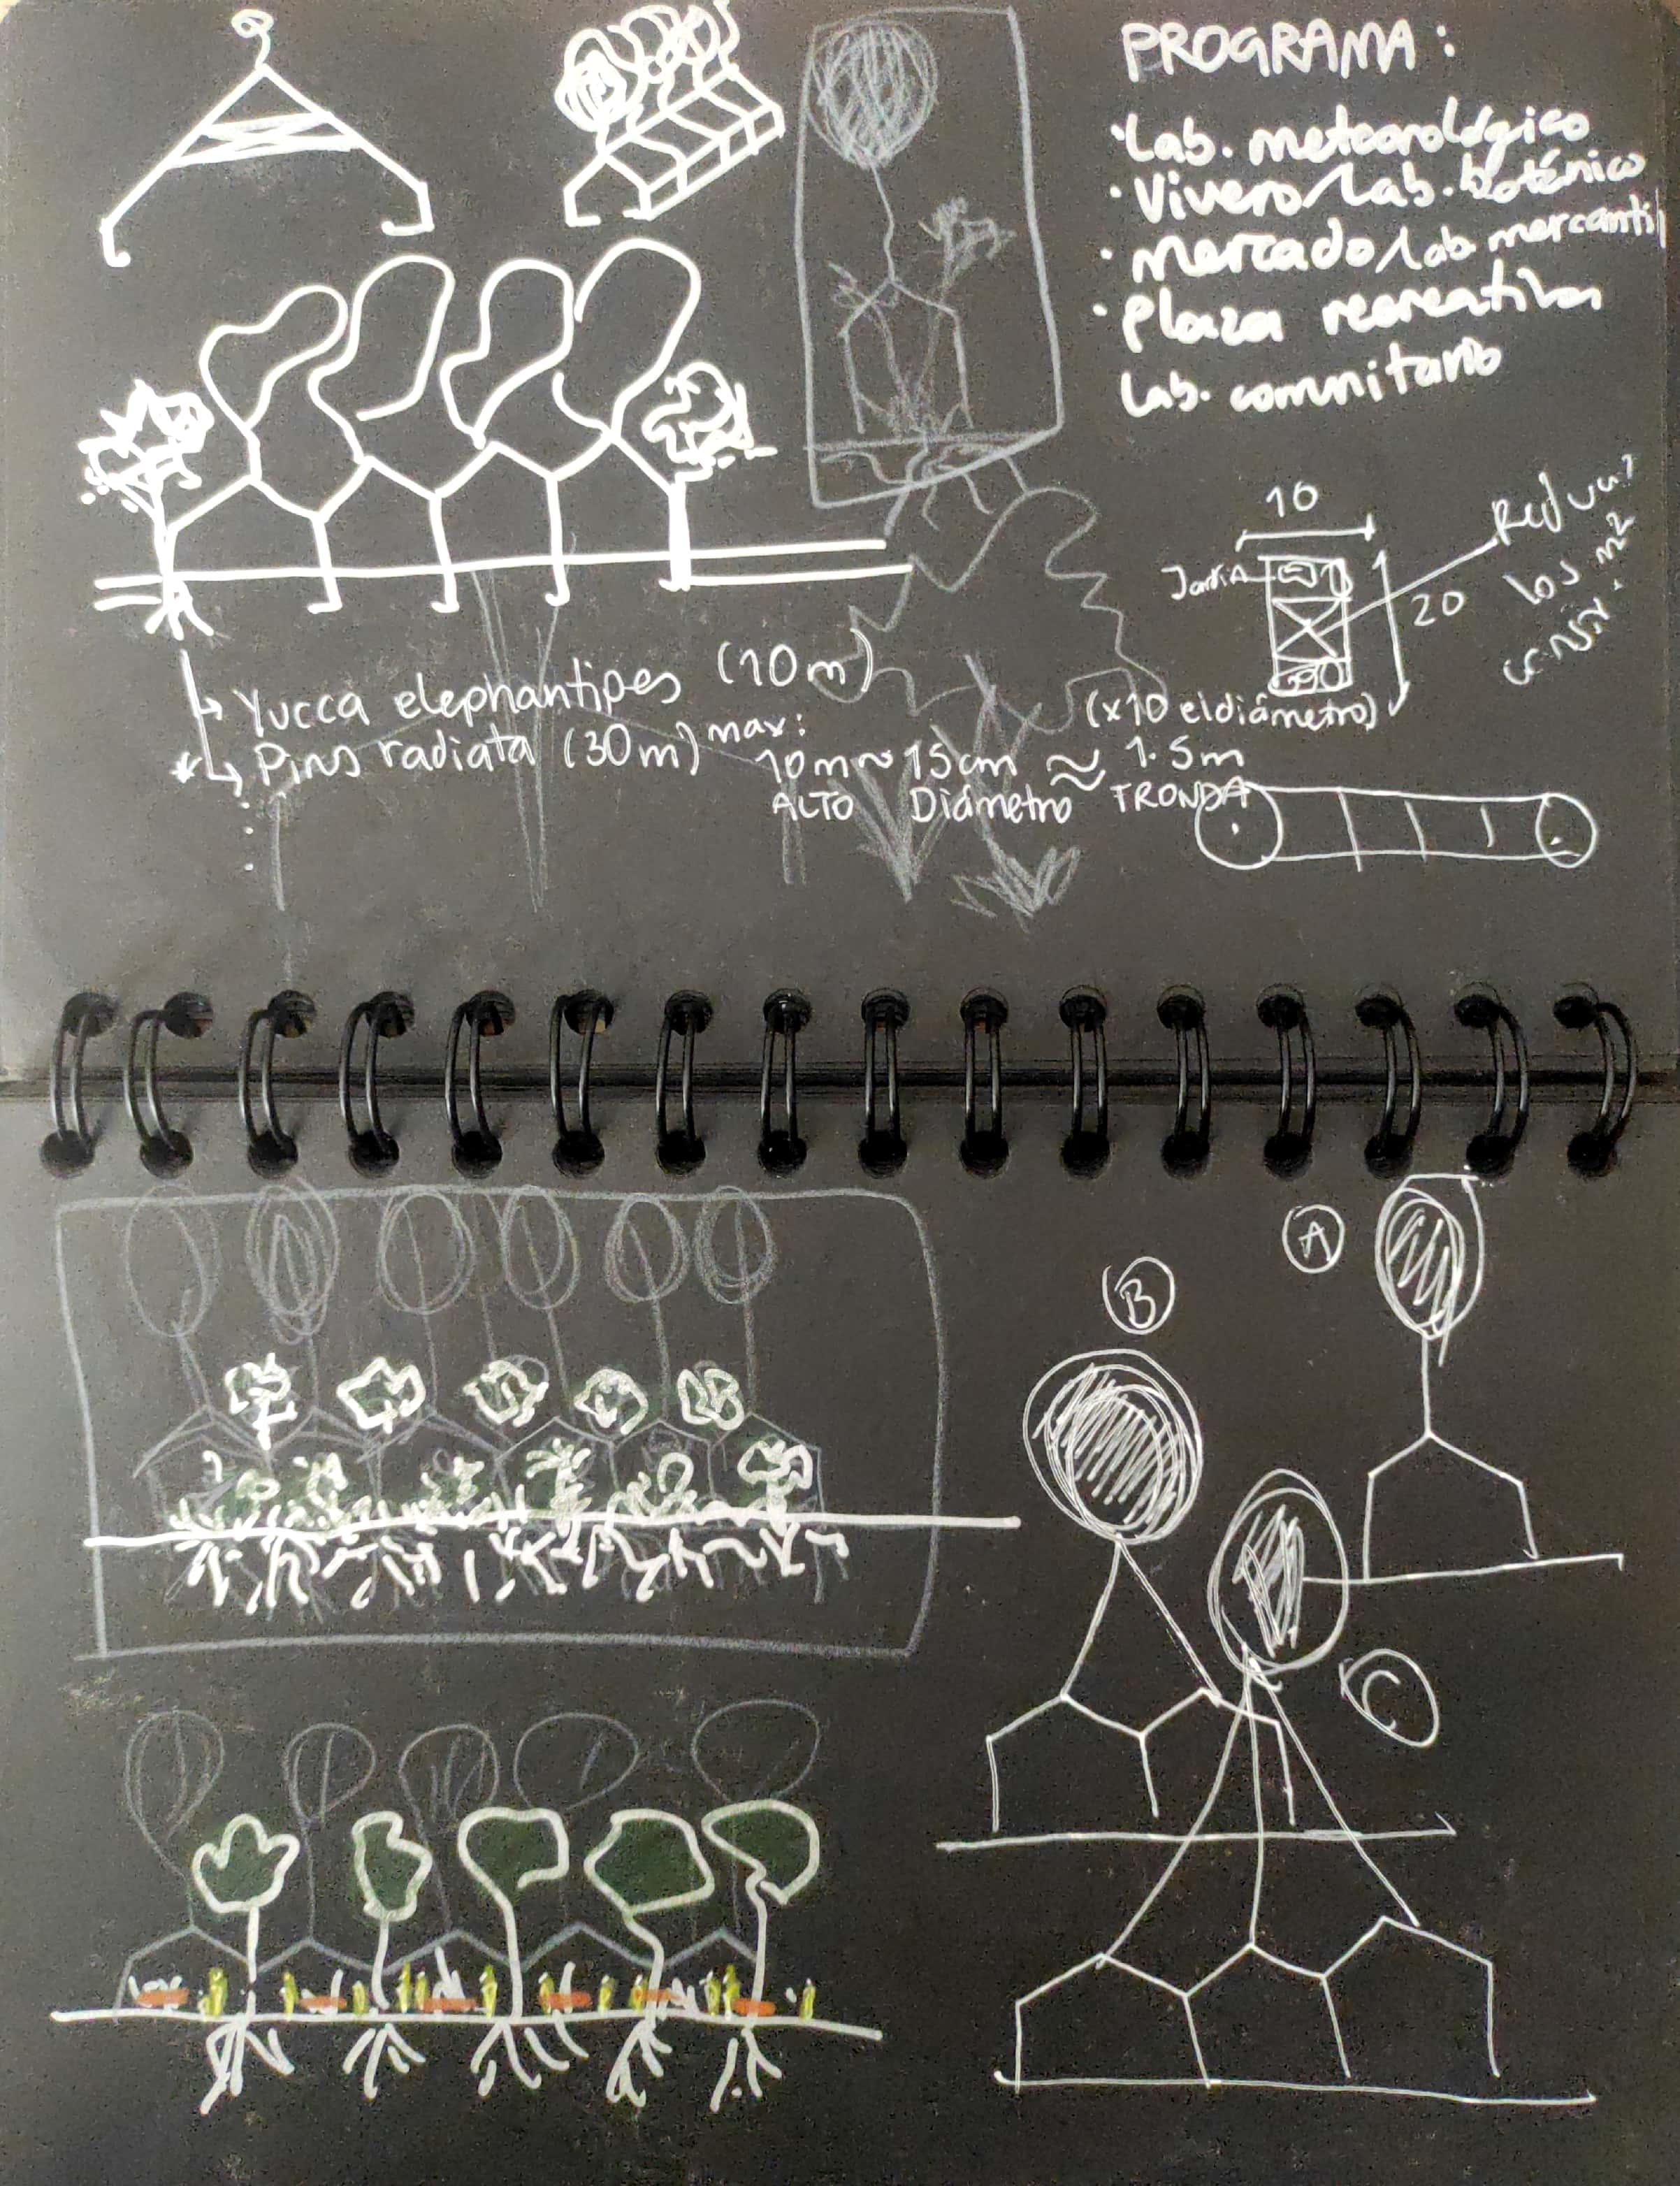 PROGRAMA:
·Lab. meteorológico
·Vivero/Lab. botánico
·Mercado/Lab mercantil
·Plaza recreativa
Lab. comunitario
10
Jardín
20
Reducir
los m²
constr.
Yucca elephantipes (10m)
Pins radiata (30m) max:
(x10 el diámetro)
10m ~ 15cm ≈ 1.5m
ALTO Diámetro FRONDA
A
B
C